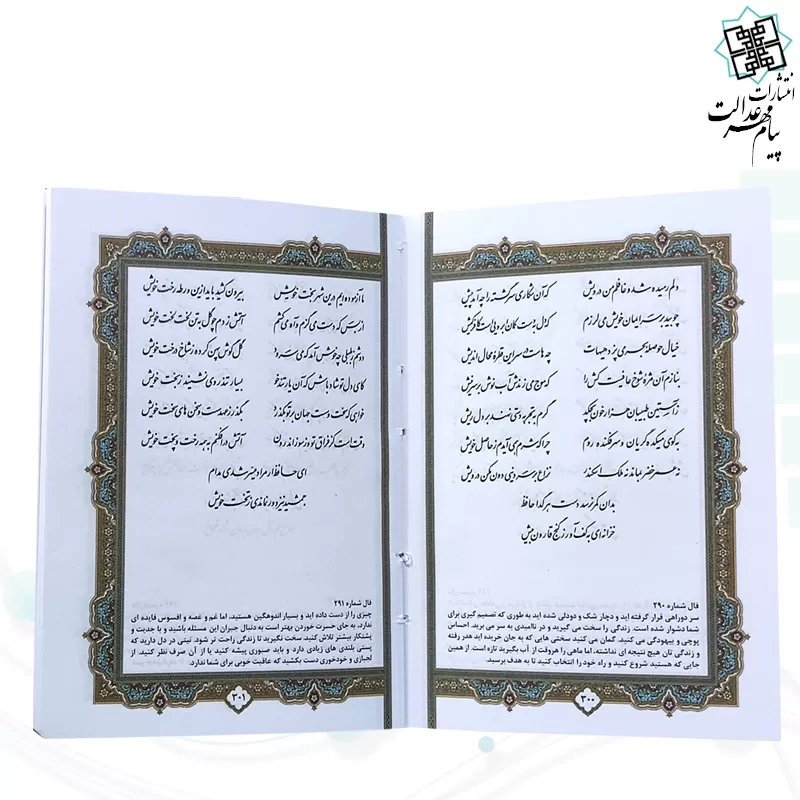 انتشارات
پیام مهر عدالت
دلم رمیده شد و غافلم من درویش که آن شکاری سرگشته را چه آمد پیش
چو بید بر سر ایمان خویش می‌لرزم که دل به دست کمان ابروییست کافرکیش
خیال حوصله بحر می‌پزد هیهات چه‌هاست در سر این قطره محال اندیش
بنازم آن مژه شوخ عافیت کش را که موج می‌زندش آب نوش بر سر نیش
ز آستین طبیبان هزار خون بچکد گرم به تجربه دستی نهند بر دل ریش
به کوی میکده گریان و سرفکنده روم چرا که شرم همی آیدم ز حاصل خویش
نه عمر خضر بماند نه ملک اسکندر نزاع بر سر دنیی دون مکن درویش
بدان کمر نرسد دست هر گدا حافظ
خزانه‌ای به کف آور ز گنج قارون بیش
فال شماره ۲۹۰
سر دوراهی قرار گرفته اید و دچار شک و دودلی شده اید به طوری که تصمیم گیری برای
شما دشوار شده است. زندگی را سخت می گیرید و در ناامیدی به سر می برید. احساس
پوچی و بیهودگی می کنید. گمان می کنید سختی هایی که به جان خریده اید هدر رفته
و زندگی تان هیچ نتیجه ای نداشته، اما ماهی را هروقت از آب بگیرید تازه است. از همین
جایی که هستید شروع کنید و راه خود را انتخاب کنید تا به هدف برسید.
۳۰۰
ما آزموده‌ایم در این شهر بخت خویش بیرون کشید باید از این ورطه رخت خویش
از بس که دست می‌گزم و آه می‌کشم آتش زدم چو گل به تن لخت لخت خویش
دوشم ز بلبلی چه خوش آمد که می‌سرود گل گوش پهن کرده ز شاخ درخت خویش
کای دل تو شاد باش که آن یار تندخو بسیار تندروی نشیند ز بخت خویش
خواهی که سخت و سست جهان بر تو بگذرد بگذر ز عهد سست و سخن‌های سخت خویش
وقت است کز فراق تو وز سوز اندرون آتش درافکنم به همه رخت و پخت خویش
ای حافظ ار مراد میسر شدی مدام
جمشید نیز دور نماندی ز تخت خویش
فال شماره ۲۹۱
چیزی را از دست داده اید و بسیار اندوهگین هستید، اما غم و غصه و افسوس فایده ای
ندارد، به جای حسرت خوردن بهتر است به دنبال جبران این مسئله باشید و با جدیت و
پشتکار بیشتر تلاش کنید. سخت نگیرید تا زندگی راحت تر شود. نیتی در دل دارید که
پستی بلندی های زیادی دارد و باید صبوری پیشه کنید یا از آن صرف نظر کنید. از
لجبازی و خودخوری دست بکشید که عاقبت خوبی برای شما ندارد.
۳۰۱